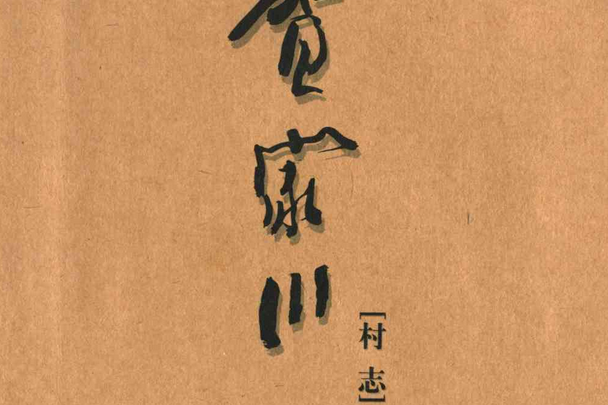 家川
[村志]